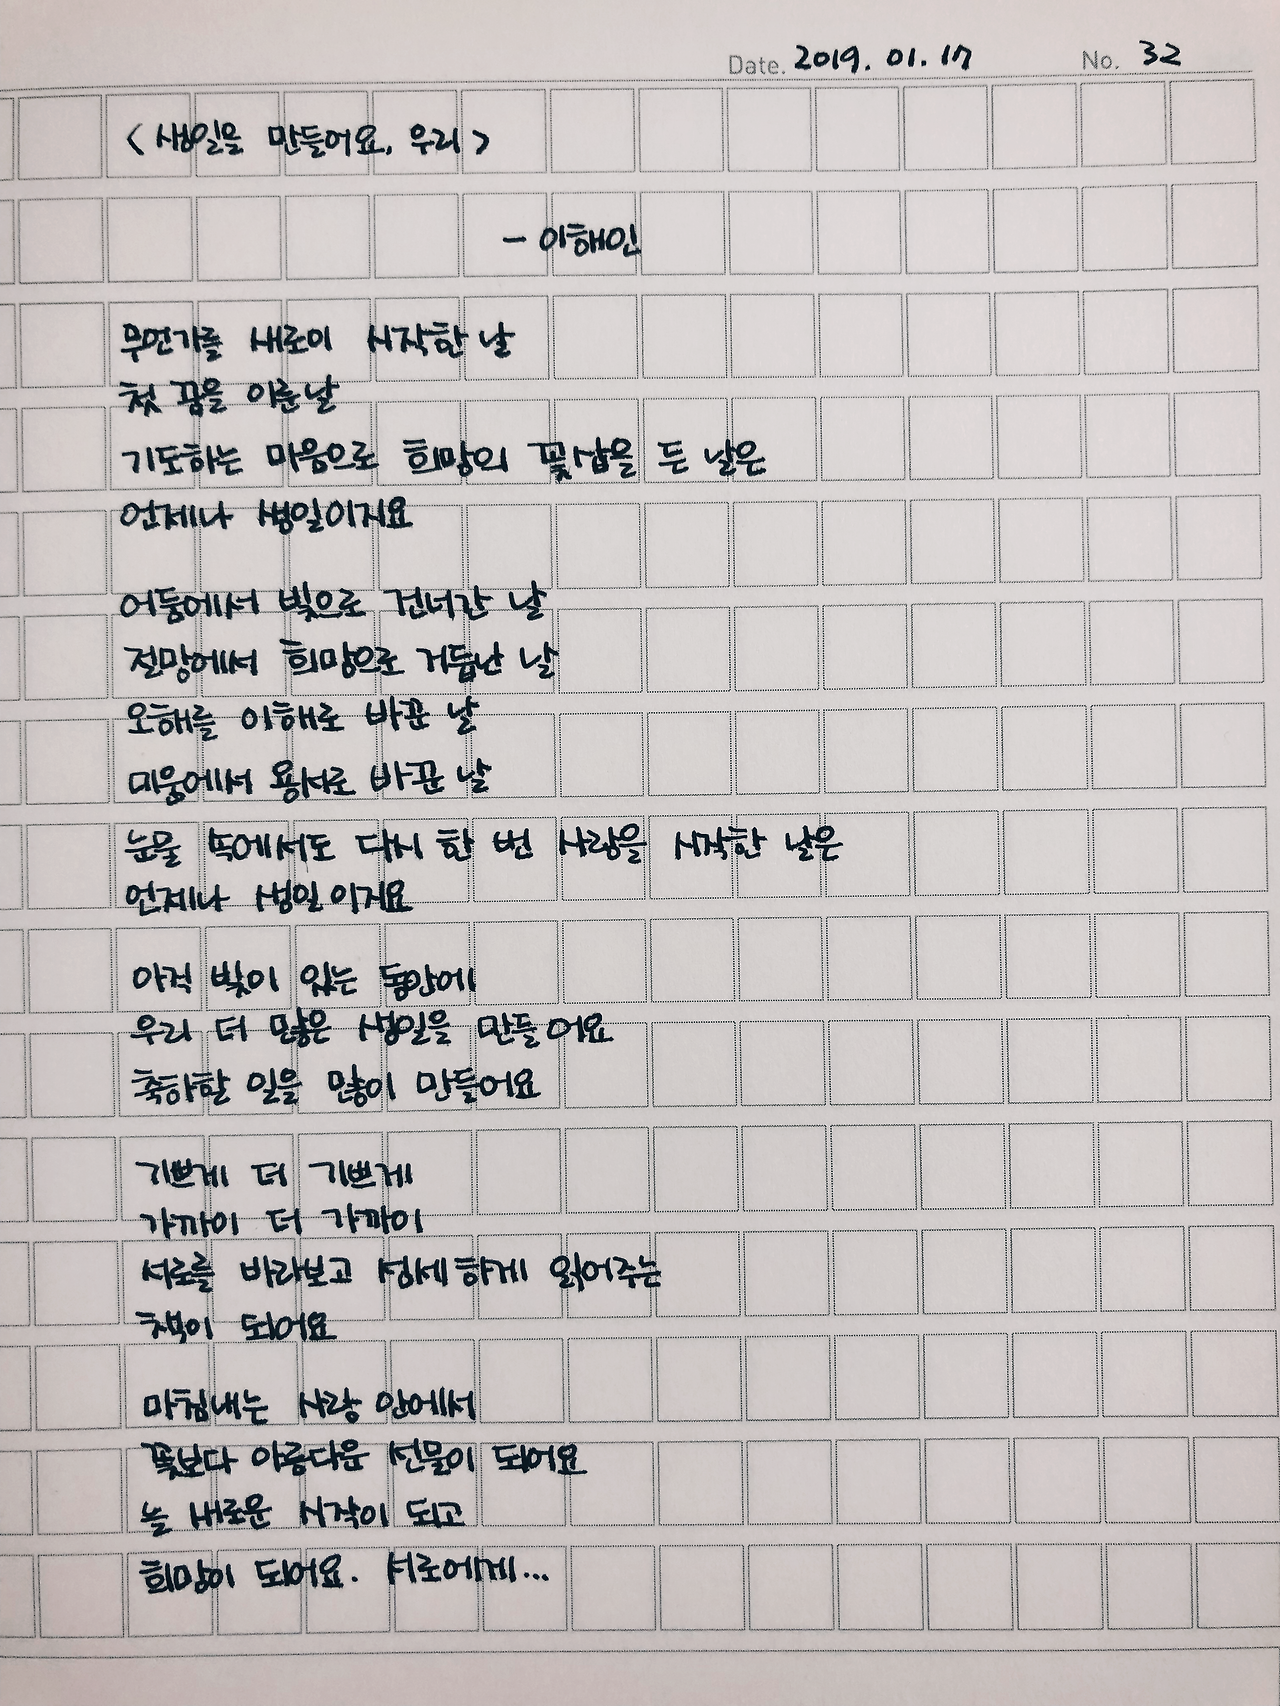 Date. 2019. 01. 17 No. 32
<생일을 만들어요, 우리>
- 이해인
무언가를 새로이 시작한 날
첫 꿈을 이룬 날
기도하는 마음으로 희망의 꽃삽을 든 날은
언제나 생일이지요
어둠에서 빛으로 건너간 날
절망에서 희망으로 거듭난 날
오해를 이해로 바꾼 날
미움에서 용서로 바꾼 날
눈물 속에서도 다시 한 번 사랑을 시작한 날은
언제나 생일이지요
아직 빛이 있는 동안에
우리 더 많은 생일을 만들어요
축하할 일을 많이 만들어요
기쁘게 더 기쁘게
가까이 더 가까이
서로를 바라보고 섬세하게 읽어주는
책이 되어요
마침내는 사랑 안에서
꽃보다 아름다운 선물이 되어요
늘 새로운 시작이 되고
희망이 되어요. 서로에게...